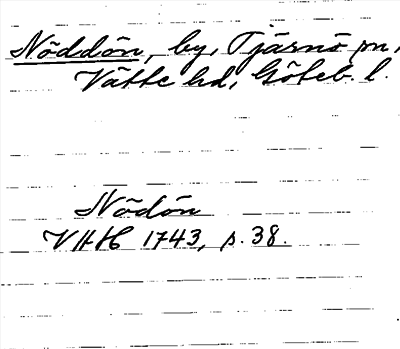 Nöddön, by, Tjärnö sn,
Vätte hd, Göteb. l.
Nödön
VHH 1743, s. 38.